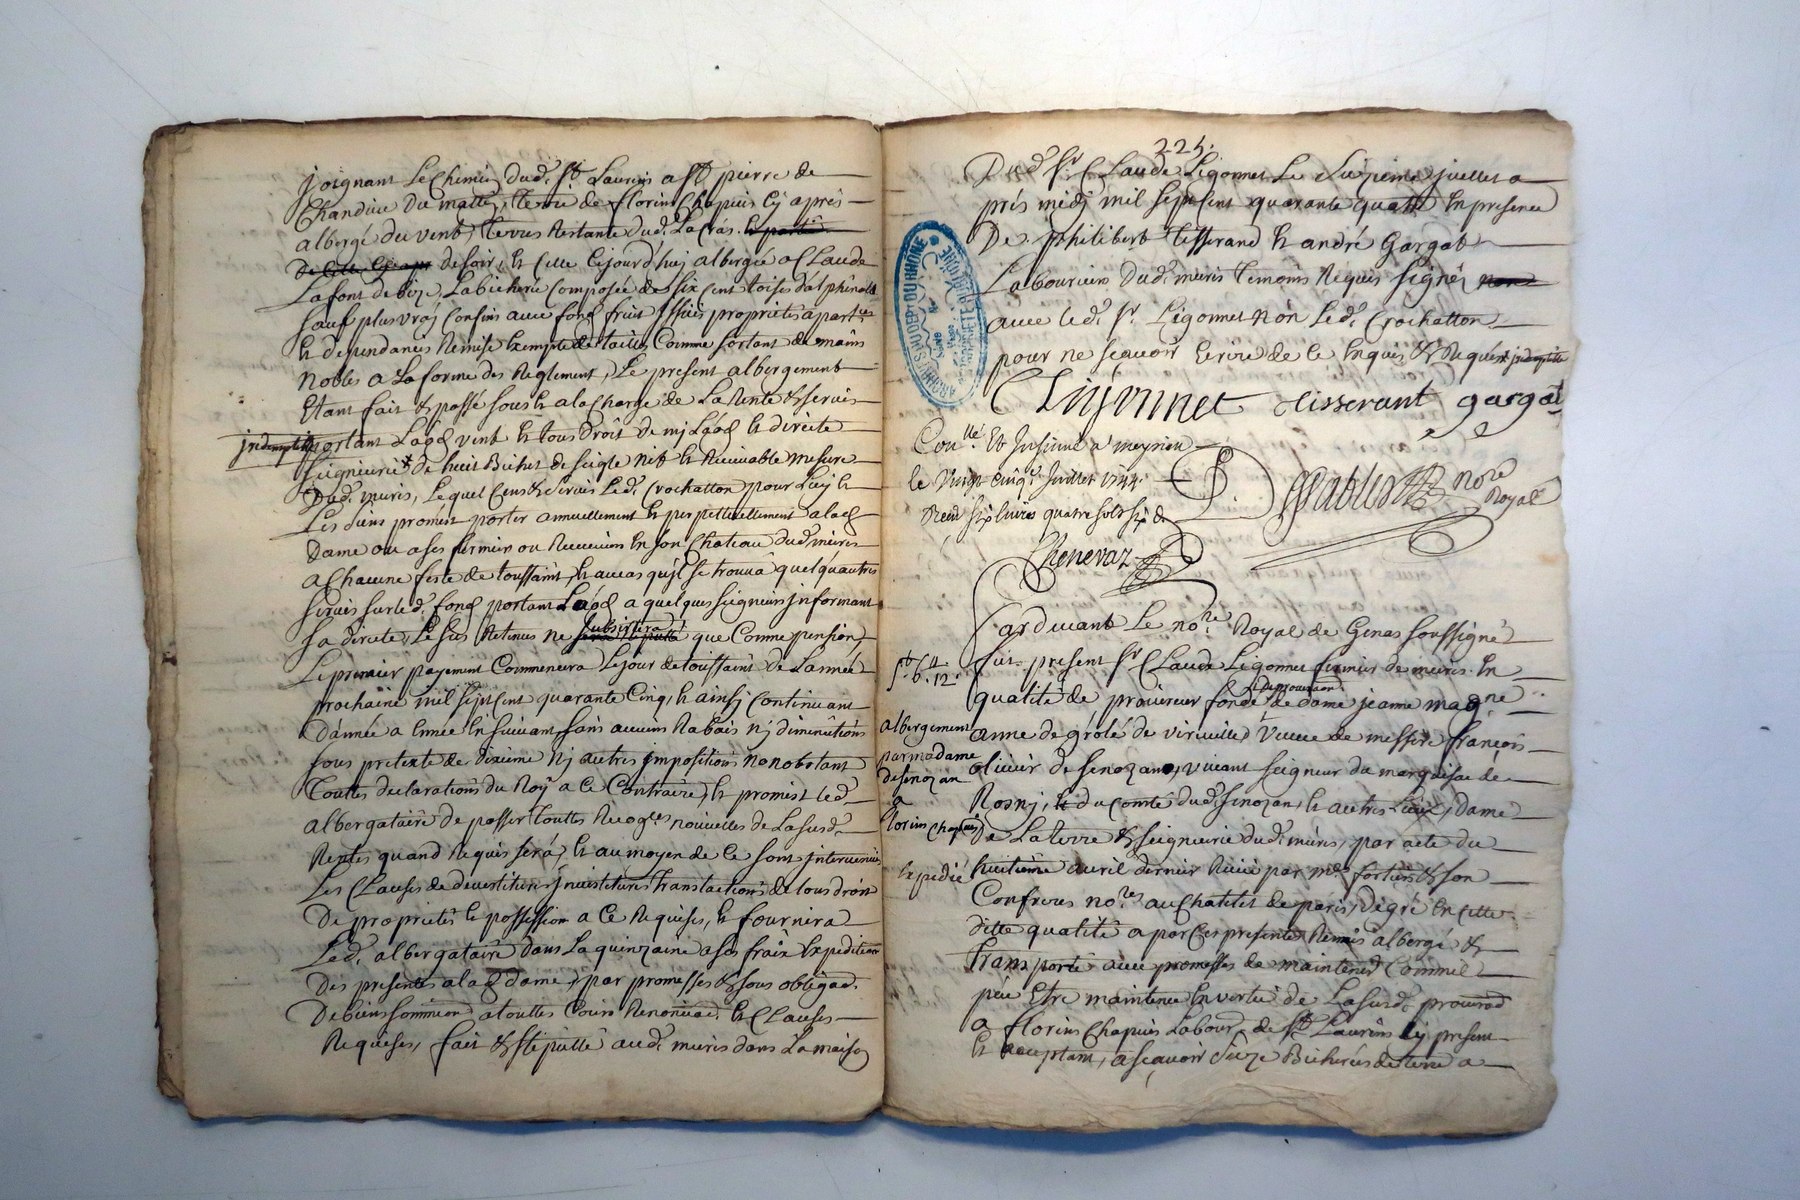 joignant le chemin dud. St Laurens a St pierre de
Chandieu du matin, terre de florins Chapuis cy après
albergé du vent, terres restante dud. La Cras
de soir, & celle cejourd'huy albergée a Claude
Lafont de bize, La bicherie composée de six cent toises dalphinale
sauf plus vray confins avec fond, fruit issües proprietés apart.ces
& dependances remise exempte de tailles comme sortant de mains
nobles a la forme des reglement, Le present albergement
Etant fait & passé sous & a la charge de La rente & servis
indemnité portant Laod vent & tous droit de mi Laod & directe
seigneurie de huit Bichet de seigle net & recevable mesure
Dud. muris, lequel cens & servis Led. Crochatton pour Luy &
Les siens promest porter annuellement & perpetuellement alad
Dame ou a ses fermier ou receveurs en son Chateau dud. muris
a chacune feste de toussaint, & au cas qu'il se trouva quelqu'autres
servis sur led. fond portant Laod a quelques seigneurs informant
sa directe, Le sus retenus ne subsistera que comme pension,
Le premier payement commencera Le jour de toussaint de L'année
prochaine mil sept cent quarante cinq, & ainsi continuant
D'année a année en suivant, sans aucuns rabais nj diminutions
sous pretexte de dixieme nj autres impositions nonobstant
Touttes declarations du Roy a ce contraire, & promest led.
albergataire de passer touttes recog.ces nouvelles de La susd.
Rentes quand requis sera, & au moyen de ce sont intervenue
Les clauses de devestitures investitures translactions de tous droits
De proprietés & possession a ce requises, & fournira
Led. albergataire dans La quinzaine a ses fraix expedition
Des presentes a lad. dame, par promesses & sous obligaō.
De biens soumissions a touttes cours renonciaō. & Clauses
Requises, fait & stipullé aud. muris dans La maison
225.
Dud. Sr Claude Ligonnet Le sixieme juillet a
près midj mil sept cent quarante quatre en presence
De philibert tisserand & andré Gargat
Laboureurs dud. muris temoins requis signés
avec led. Sr Ligonnet non Led. Crochatton
pour ne sçavoir ecrire de ce enquis & requis indemnité
CLigonnet tisserant gargat
Con.llé Et Insinué a meyzieu
le vingt cinq.e Juillet 1744.
Receu six livres quatre sols six d.
Chenevaz
Desablés nore Royal
Pardevant Le no.re Royal de Genas soussigné
fut present Sr Claude Ligonnet fermier de muris en
qualité de procureur fondé de procuraōn de dame jeanne magne
anne de grolé de virville, Veuve de messire françois
olivier de senozan, vivant seigneur du marquisat de
Rosnj, du comté dud. senozan & autres Lieux, dame
De La terre & seigneurie dud. muris, par acte du
huitieme avril dernier Reçu par me fortier & son
Confreres no.res au Chatelet de paris, de gré en cette
ditte qualité a par ces presentes remis albergé &
Transporté avec promesses de maintenir comme il
peu Etre maintenue en vertu de La susd. procuraō
a florins Chapuis Labour. de St Laurens cy present
& acceptant, a sçavoir seize Bicherées de terre a
albergement
par madame
de senozan
a
florins Chapuis
Expedié